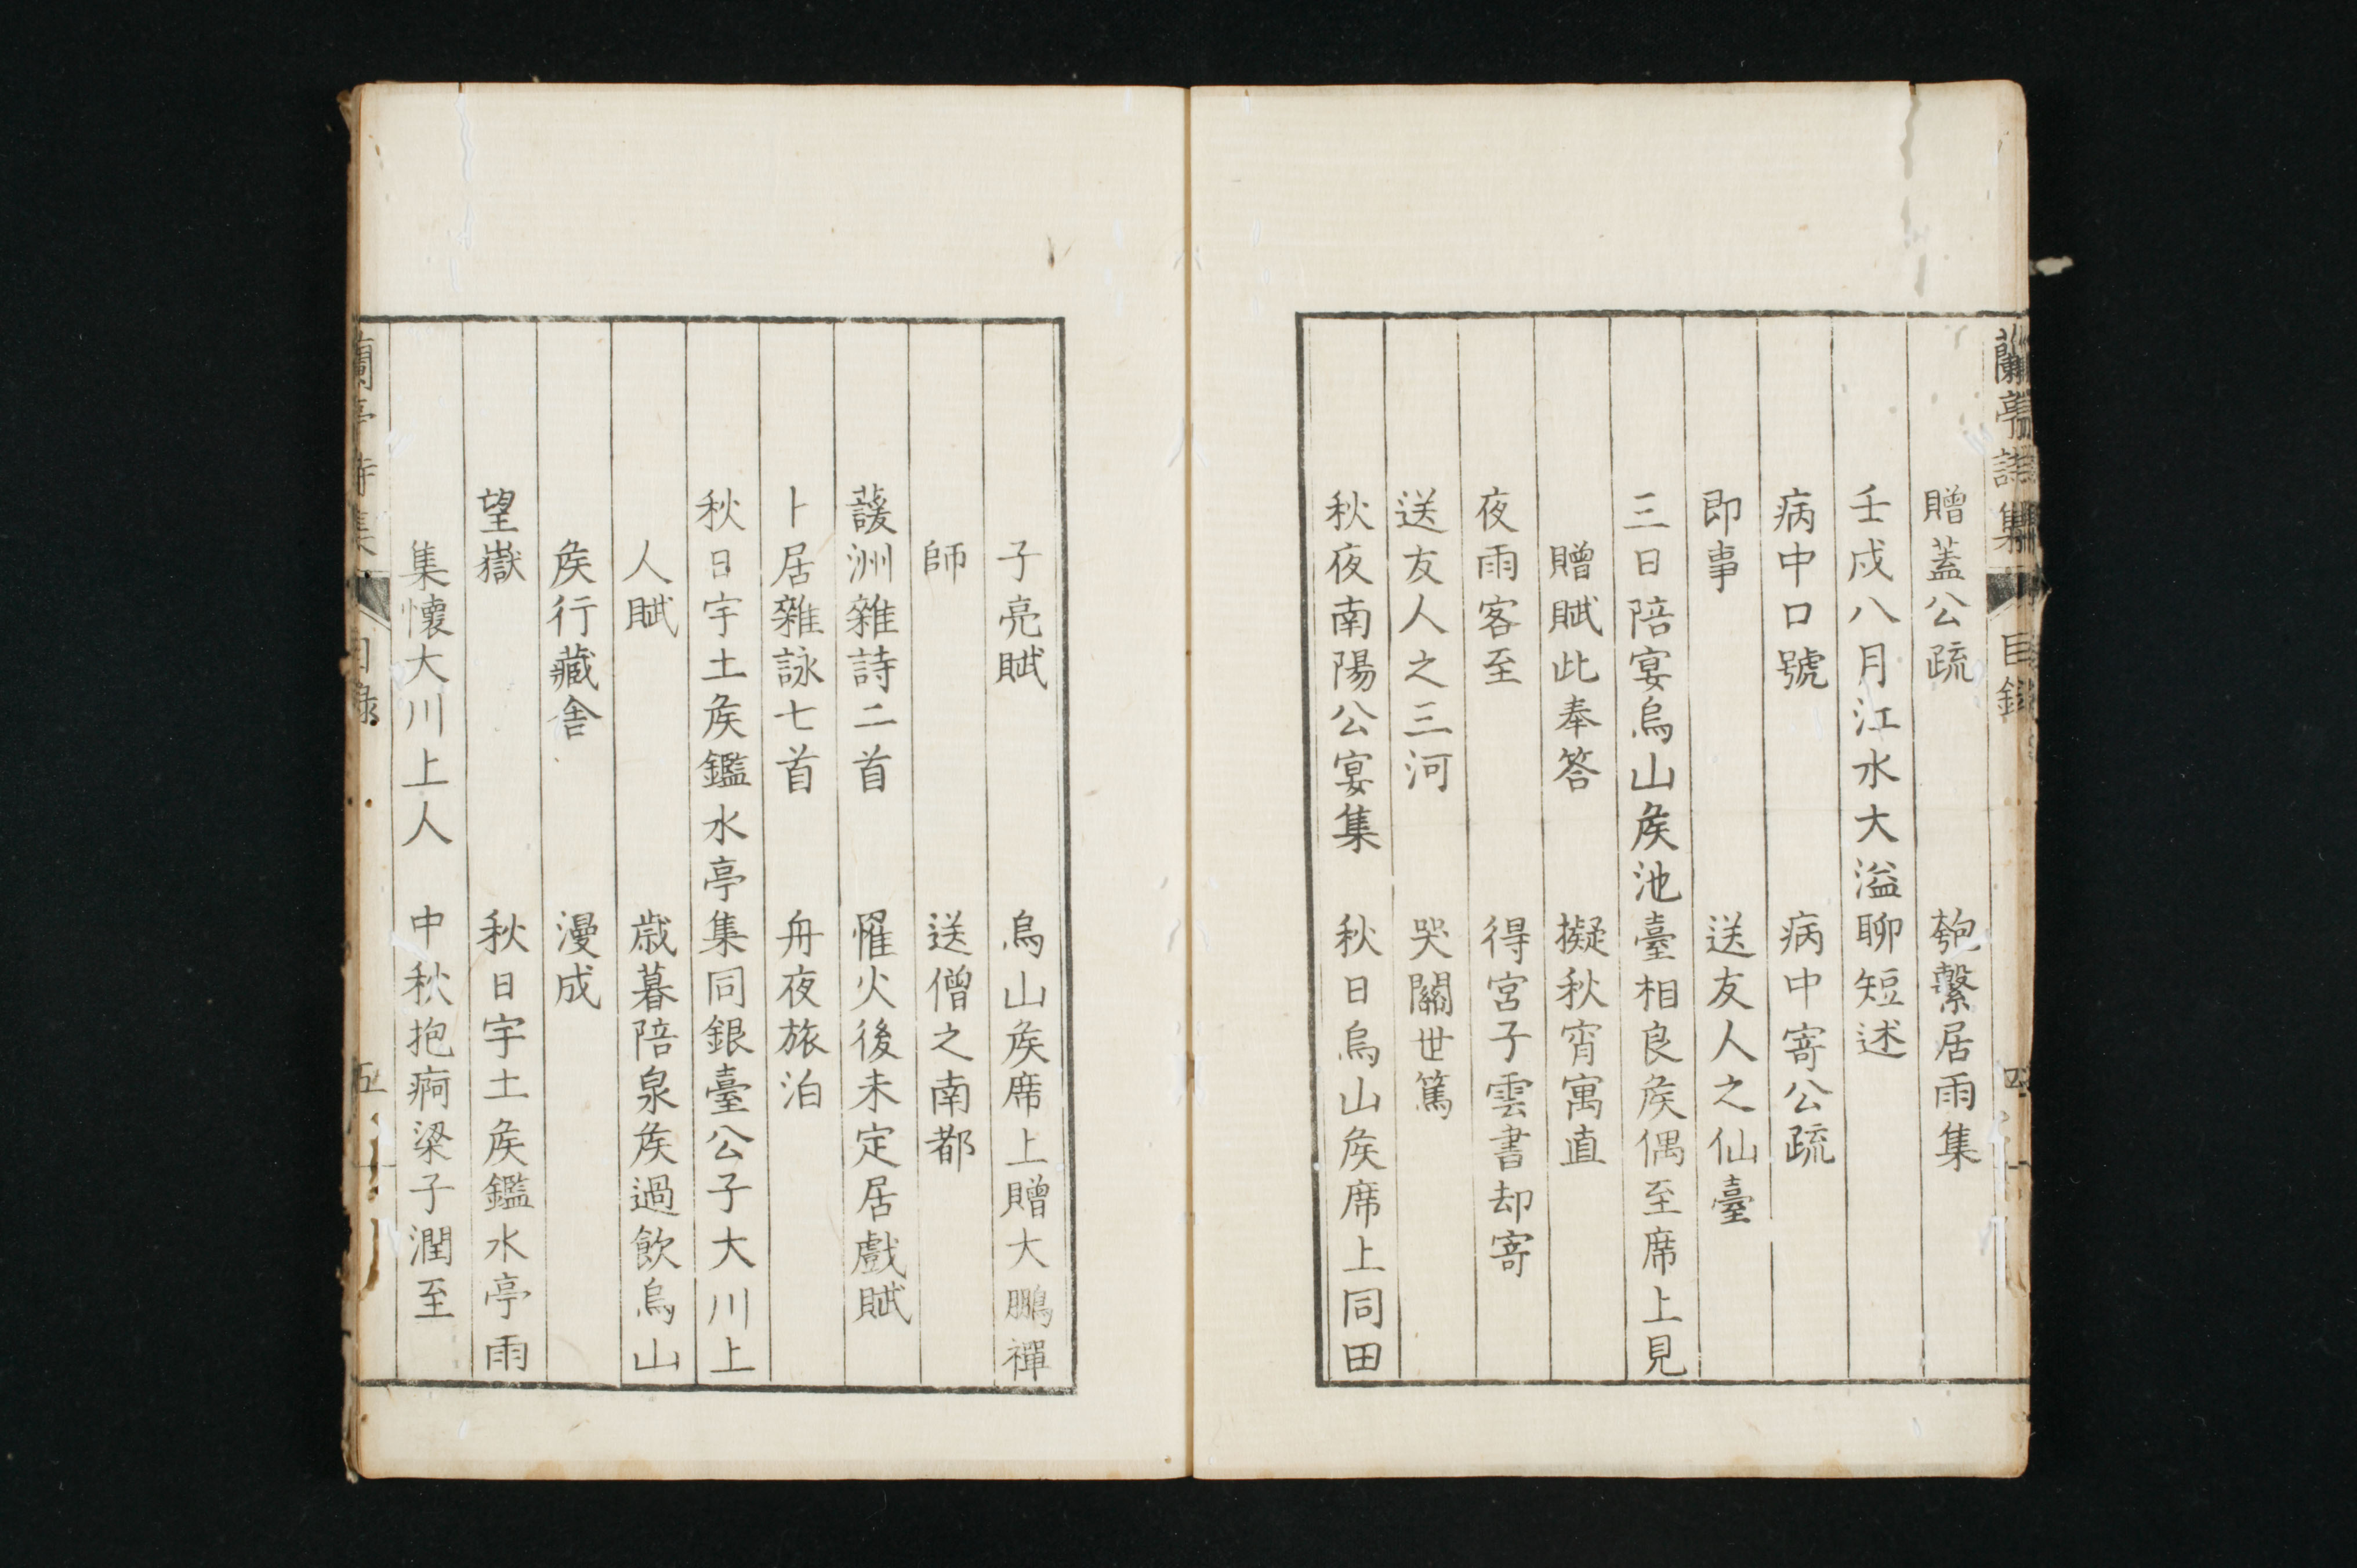 蘭亭詩集 目錄 四
贈蓋公疏 匏繫居雨集
壬戌八月江水大溢聊短述
病中口號 病中寄公疏
即事 送友人之仙臺
三日陪宴烏山矦池臺相良矦偶至席上見
贈賦此奉答 擬秋宵寓直
夜雨客至 得宮子雲書却寄
送友人之三河 哭關世篤
秋夜南陽公宴集 秋日烏山矦席上同田
子亮賦 烏山矦席上贈大鵬禪
師 送僧之南都
諼洲雜詩二首 罹火後未定居戲賦
卜居雜詠七首 舟夜旅泊
秋日宇土矦鑑水亭集同銀臺公子大川上
人賦 歲暮陪泉矦過飲烏山
矦行藏舍 漫成
望嶽 秋日宇土矦鑑水亭雨
集懷大川上人 中秋抱痾梁子潤至
蘭亭詩集 目錄 五